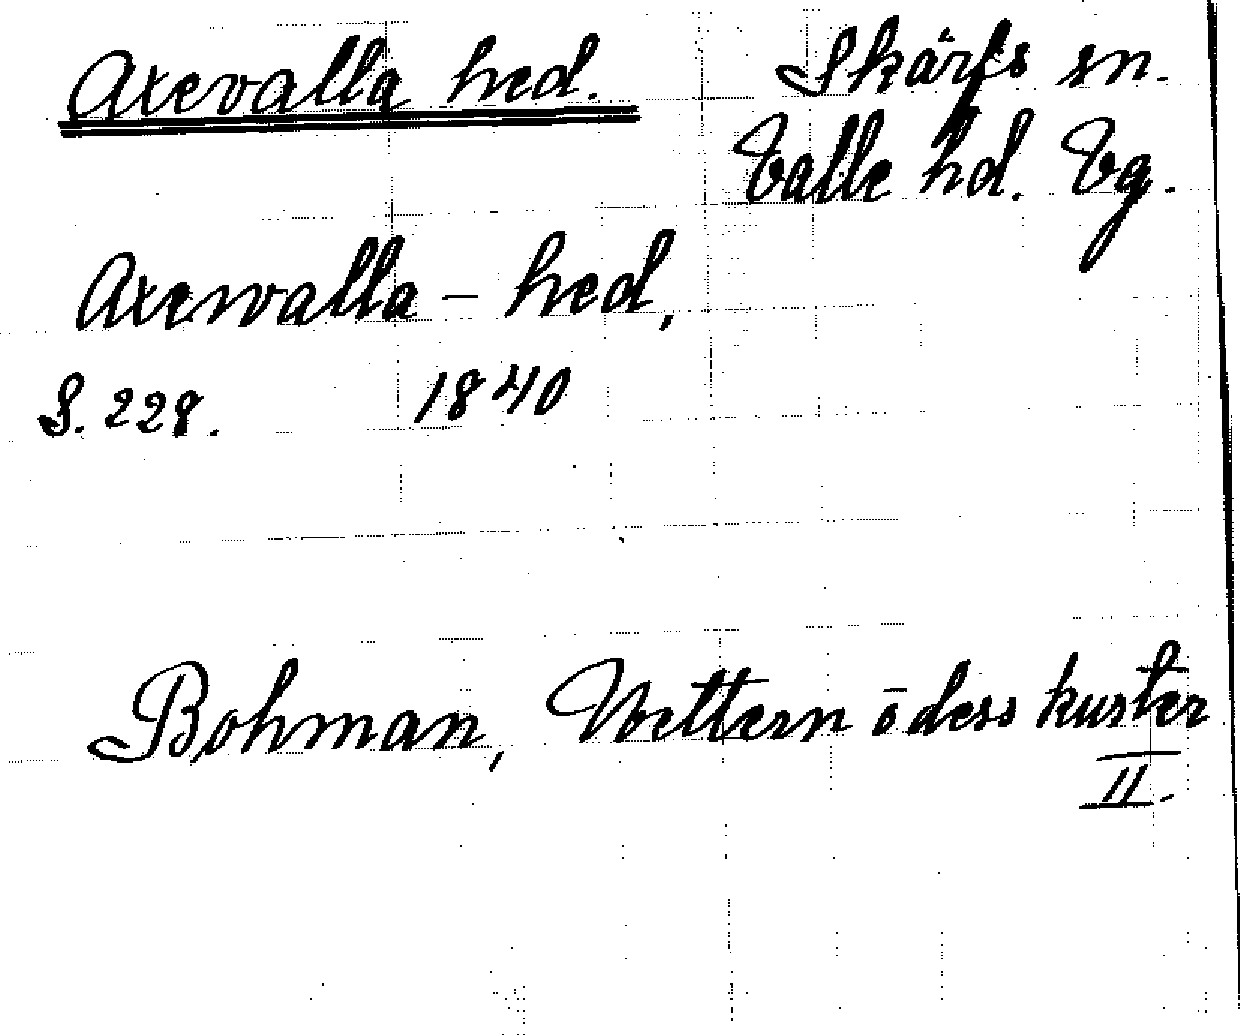 Axevalla hed.
Skärfs sn.
Valle hd. Vg.
Axewalla - hed,
S. 228. 1840
Bohman, Wettern o dess kuster
II.